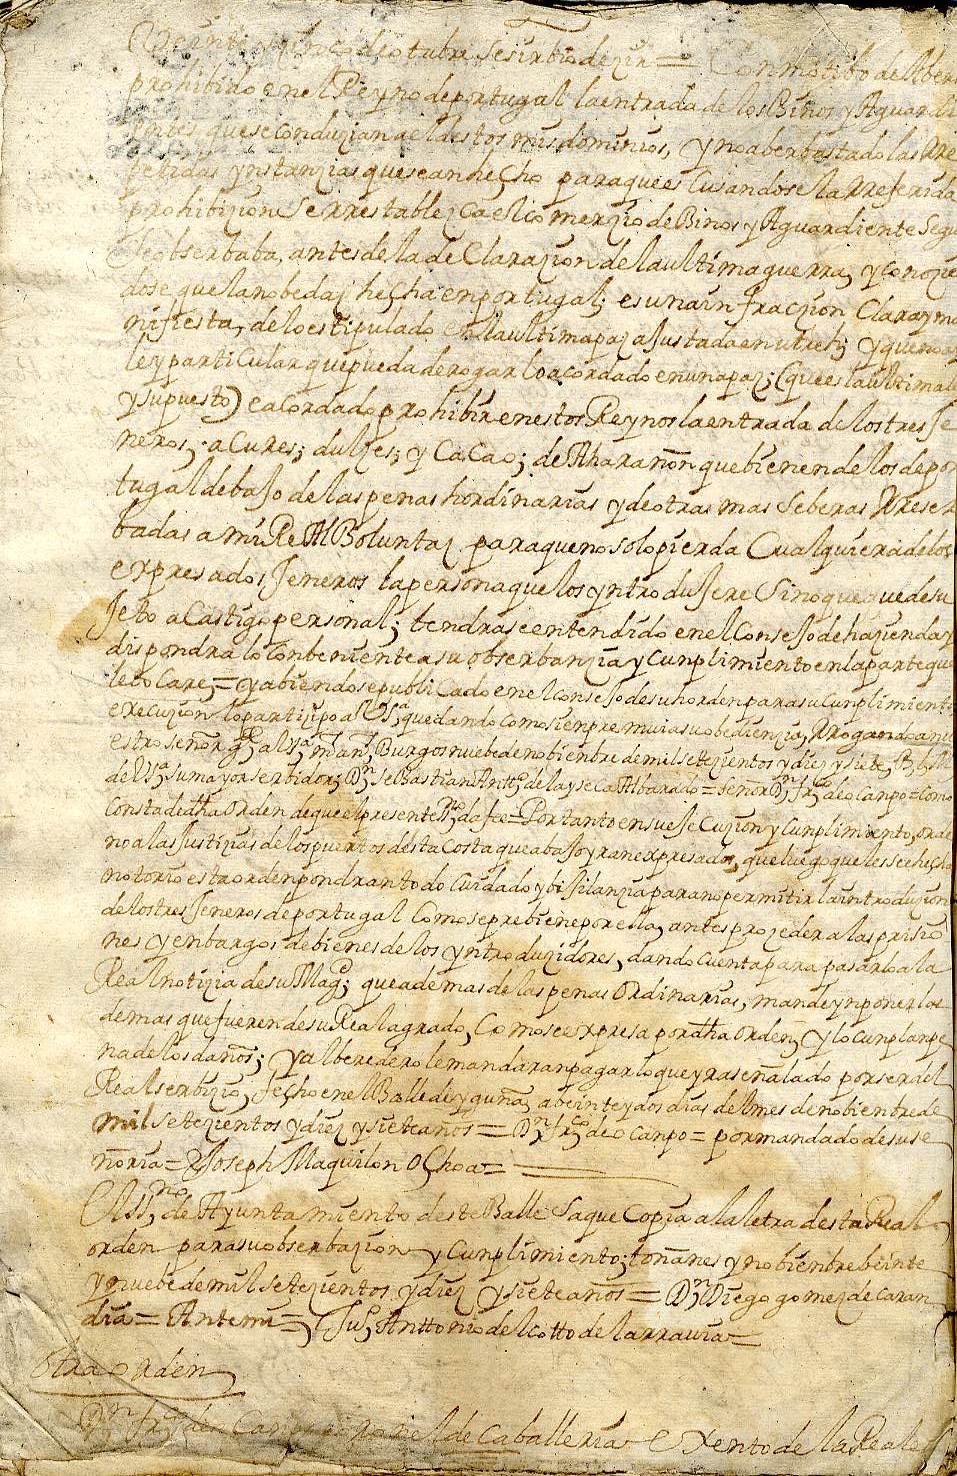 de otubre se sirbio dezir = Con motibo de Aber
prohibido en el Reyno de portugal la entrada de los Binos y Aguardi
entes, que se conduzian a el destos mis dominios, y no aber bastado las Rre
petidas ynstanzias que se an hecho para que escusandose la Rreferida
prohibizion se rrestablezca el comerzio de Binos y Aguardiente Segu
se obserbaba, antes de la de Clarazion de la ultima guerra, y conozie
dose que la nobedaz hecha en portugal; es una infraczion Clara y ma
nifiesta, de lo estipulado en la ultima paz aJustada en utrech; y que no ay
ley particular que pueda derogar lo acordado en una paz; (que es la ultima le
y supuesto) e acordado prohibir en estos Reynos la entrada de los tres Je
neros; aCures; dulzes; y CaCao; de Maranon que bienen de los de por
tugal debaJo de las penas hordinarias y de otras mas Seberas Rreser
badas a mi ReAl Boluntaz para que no solo pierda Cualquiera de los
expresados Jeneros la persona que los yntroduJere Sino que quede su
Jeto a Castigo personal; tendrase entendido en el ConseJo de hazienda y
dispondra lo conbeniente a su obserbanzia y Cunplimiento en la parte que
le toCare; = y abiendose publiCado en el conseJo de su horden para su Cunplimiento
execuzion lo partizipo a Vsa, quedando como sienpre mui a su obedienzia, Rrogando a nu
estro señor ge a Vsa; ms ans; Burgos nuebe de nobienbre de mil setezientos y diez y siete, B L M
de Vsa; su mayor serbidor; Dn SeBastian Antto de la yseca Albarado = señor Dn; Frco de o Canpo = Como
Consta de dha Orden de que el presente Sno; da fee = Por tanto en su eJeCuzion y Cunplimiento, orde
no a las Justizias de los puertos desta Costa que abaJo yran expresados, que luego que les see hecha
notorio esta orden pondran todo Cuidado y biJilanzia para no permitir la introduzion
de los tres Jeneros de portugal Como se prebiene por ella, antes prozeder a las prisio
nes y enbargos de bienes de los yntroduzidores, dando Cuenta para pasarlo a la
Real notizia de su Magd; que ademas de las penas Ordinarias, mande ynponer las
demas que fueren de su Real agrado, Como se expresa por dha orden, y lo cunplan pe
na de los daños; y al beredero le mandaran pagar lo que yra señalado por ser del
Real serbizio, fecho en el Balle de yguña, a beinte y dos dias del mes de nobienbre de
mil setezientos y diez y siete años = Dn; Frco de o Canpo = por mandado de su se
ñoria = Joseph Maquilon OChoa =
de Ayuntamiento deste Balle Saque Copia a la letra desta Real
orden para su obserbazion y Cunplimiento; toñanes y nobienbre beinte
y nuebe de mil setezientos y diez y siete años = Dn; Diego gomez de Caran
dia = Ante mi =, Jun, Anttonio del cotto de la rrauia =
Otra orden
Dn frco de Canpo ronel de Caballeria Exento de la Real